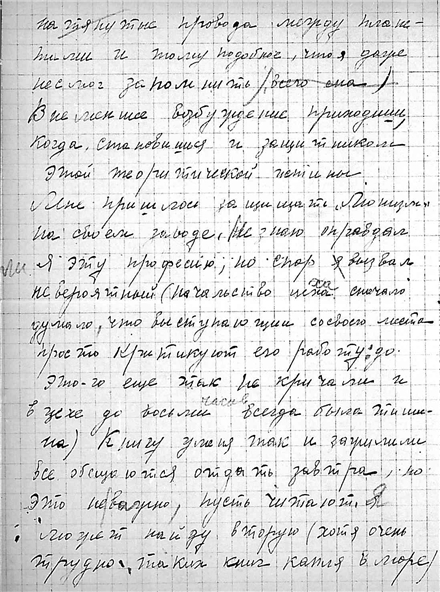 натянутые провода между плане-
тами и тому подобное, что я даже
не смог запомнить (всего сна)
Вне меньшее возбуждение приходишь,
когда, становишся и защитником
этой теоритической истины
Мне пришлось защищать „Лоцман"
на своем заводе. Не знаю оправдал
ли я эту професию, но спор я вызвал
невероятный (начальство цеха сначало
думало, что выступающии со своего места
просто критикуют его работу: до
это-го еще так не кричали и
в цехе до восьми часов всегда была тиши-
на) Книгу у меня так и зачитали
все обещаются отдать завтра, но
это не важно, пусть читают. Я
может найду вторую (хотя очень
трудно, таких книг капля в море)